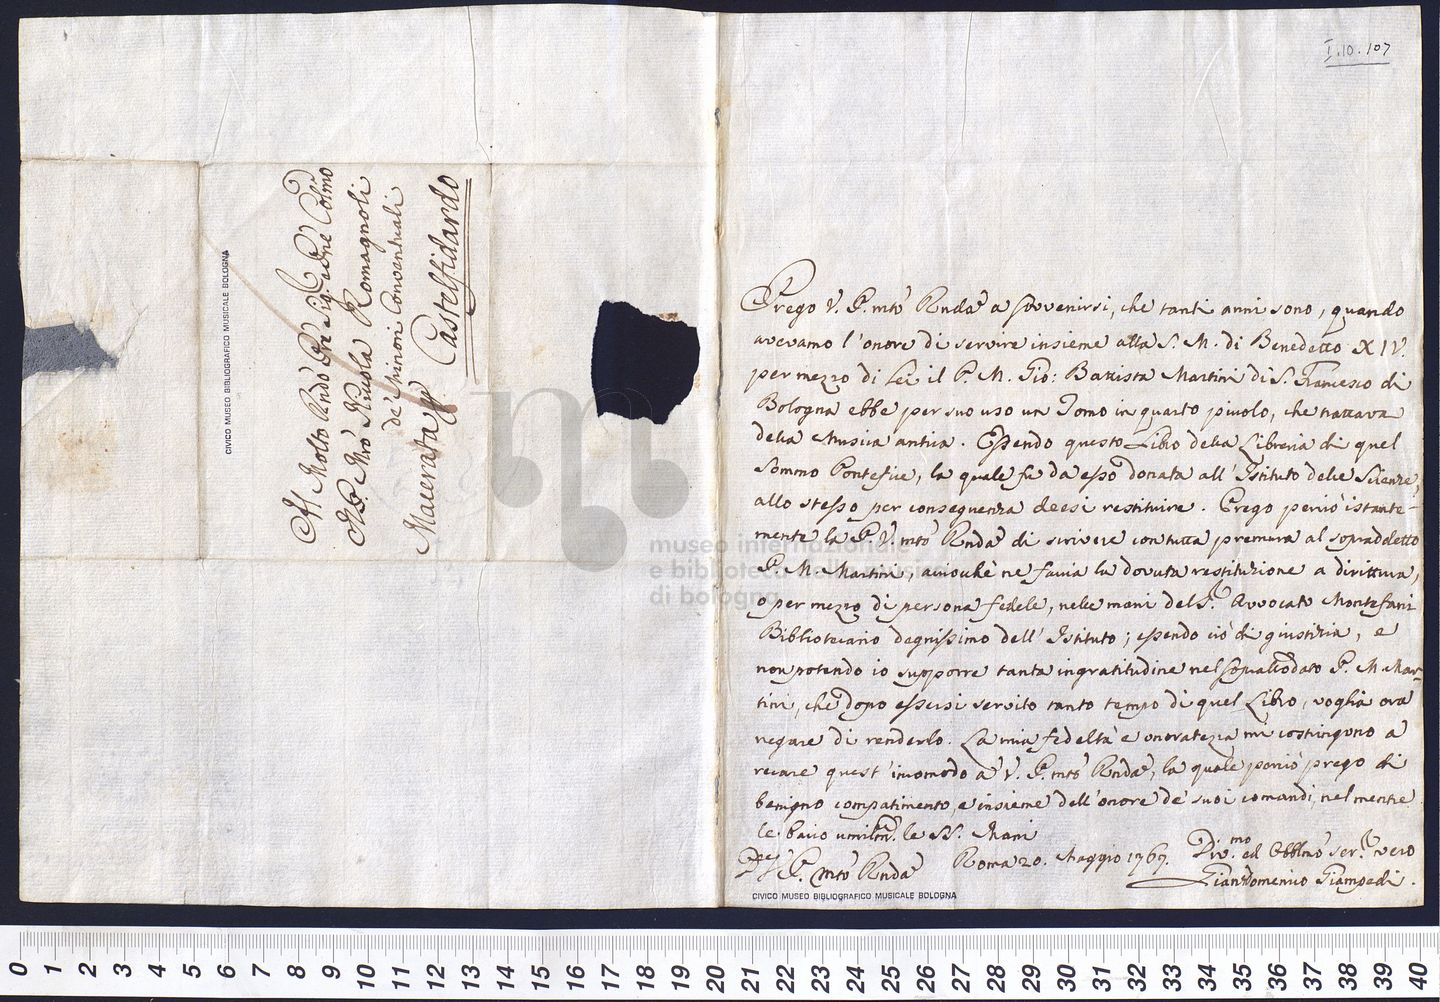 Al Molto Rndo Pre Sig. Pdre Colmo
Il P. Mro Nicola Romagnoli
de' Minori Conventuali
Macerata p.
Castelfidardo
CIVICO MUSEO BIBLIOGRAFICO MUSICALE BOLOGNA
I.10.107
Prego V. P. mto Rnda a sovvenirsi, che tanti anni sono, quando
avevamo l'onore di servire insieme alla S. M. di Benedetto XIV.
per mezzo di Lei il P. M. Gio: Battista Martini di S. Francesco di
Bologna ebbe per suo uso un Tomo in quarto picolo, che trattava
della Musica antica. Essendo questo Libro della Libreria di quel
Sommo Pontefice, la quale fu da esso donata all'Istituto delle Scienze,
allo stesso per conseguenza deesi restituire. Prego perciò istante-
mente la P. V. mto Rnda di scrivere con tutta premura al sopraddetto
P. M. Martini, acciochè ne faccia la dovuta restituzione a dirittura,
o per mezzo di persona fedele, nelle mani del S.r Avvocato Montefani
Bibliotecario degnissimo dell'Istituto; essendo ciò di giustizia, e
non potendo io supporre tanta ingratitudine nel sopralodato P. M. Mar-
tini, che dopo essersi servito tanto tempo di quel Libro, voglia ora
negare di renderlo. La mia fedeltà e onoratezza mi costringono a
recare quest'incomodo a V. P. mto Rnda, la quale perciò prego di
benigno compatimento, e insieme dell'onore de' suoi comandi, nel mentre
le bacio umilm.e le SS. Mani
Di V. P. Mto Rnda
Roma 20. Maggio 1767.
Div.mo ed Obblmo ser.r vero
Giandomenico Giampedi.
CIVICO MUSEO BIBLIOGRAFICO MUSICALE BOLOGNA
museo internazionale
e biblioteca della musica
di bologna
0 1 2 3 4 5 6 7 8 9 10 11 12 13 14 15 16 17 18 19 20 21 22 23 24 25 26 27 28 29 30 31 32 33 34 35 36 37 38 39 40